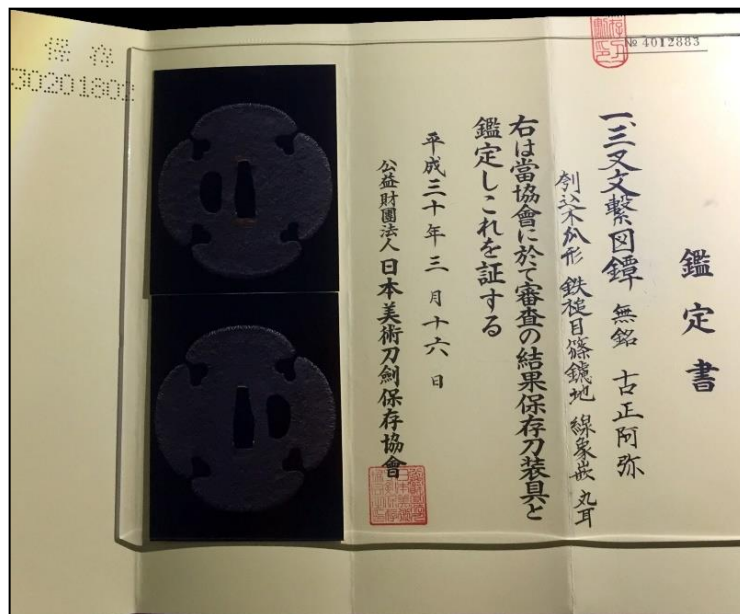 № 4012883
鑑定書
一、三叉文繋図鐔 無銘 古正阿弥
刳込木瓜形 鉄槌目篠鑢地 線象嵌 丸耳
右は當協會に於て審査の結果保存刀装具と
鑑定しこれを証する
平成三十年三月十六日
公益財團法人 日本美術刀劍保存協會
保存
30201802